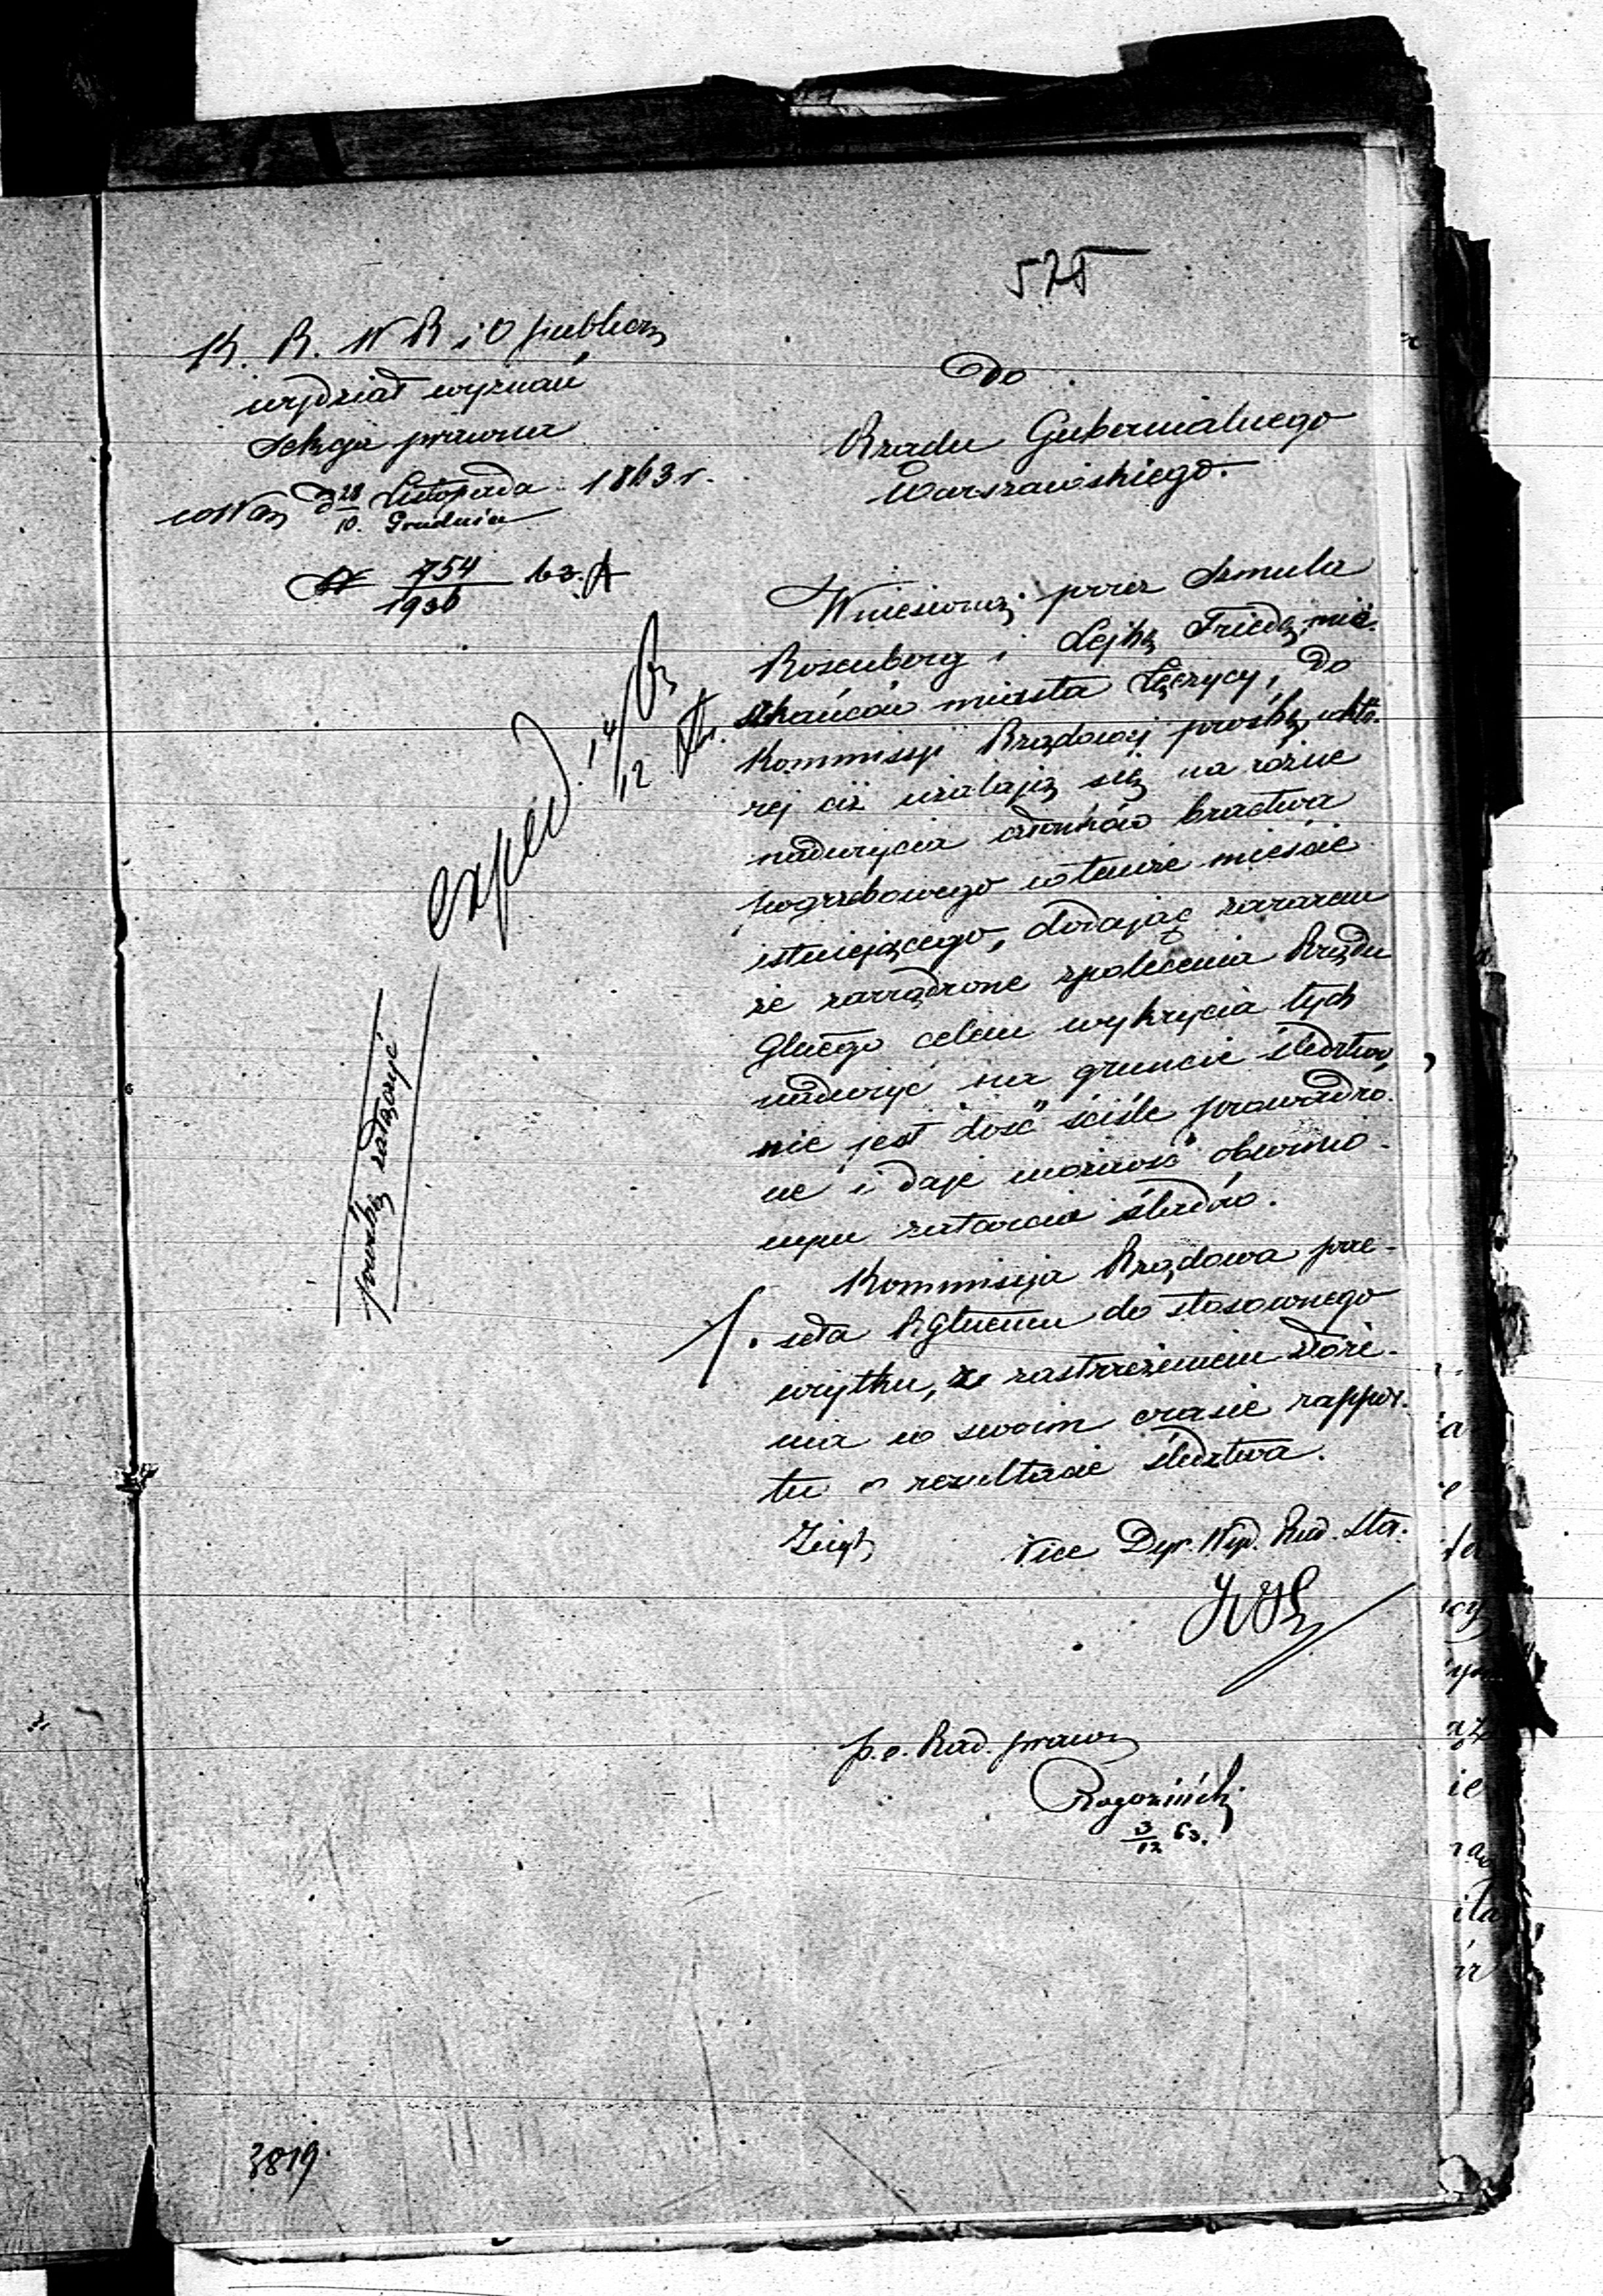 575
K. R. W R i O publicz
wydział wyznań
Sekcja prawna
w War d 28 Listopada 1863 r.
10. Grudnia
N 754 63.
1936
Do
Rządu Gubernialnego
Warszawskiego.
exped. 14/12
prośbę załączyć
Wniesioną przez Szmula
Rosenberg i Lejbę Friede, mie-
szkańców miasta Łęczycy, do
Kommissyi Rządowej prośbę, w któ-
rej ciż użalają się na różne
nadużycia członków bractwa
pogrzebowego w temże mieście
istniejącego, dodając zarazem
że zarządzone z polecenia Rządu
Glnego celem wykrycia tych
nadużyć na gruncie śledztwo,
nie jest dość ściśle prowadzo-
ne i daje możność obwinio-
nym zatarcia śladów.
Kommissja Rządowa prze-
seła RGlnemu do stosownego
użytku, z zastrzeżeniem złoże-
nia w swoim czasie rappor-
tu o rezultacie śledztwa.
Vice Dyr. Wyd. Rad. Sta.
p.o. Rad. prawn
Rogoziński
3/12 63.
3819.